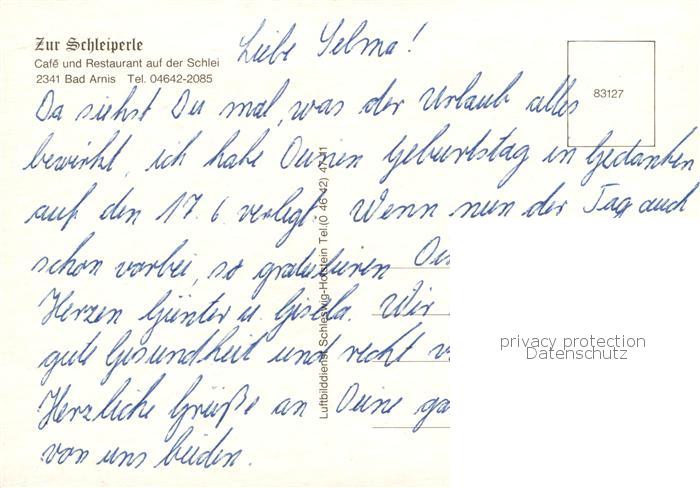 Zur Schleiperle
Café und Restaurant auf der Schlei
2341 Bad Arnis Tel. 04642-2085
83127
Liebe Selma!
Da siehst Du mal, was der Urlaub alles
bewirkt, ich habe Deinen Geburtstag in Gedanken
auf den 17. 6. verlegt. Wenn nun der Tag auch
schon vorbei, so gratulieren
Herzen Günter u. Gisela. Wir
gute Gesundheit und recht
Herzliche Grüße an Deine
von uns beiden.
Luftbilddienst Schleswig-Holstein Tel.(0 46 42)
privacy protection
Datenschutz